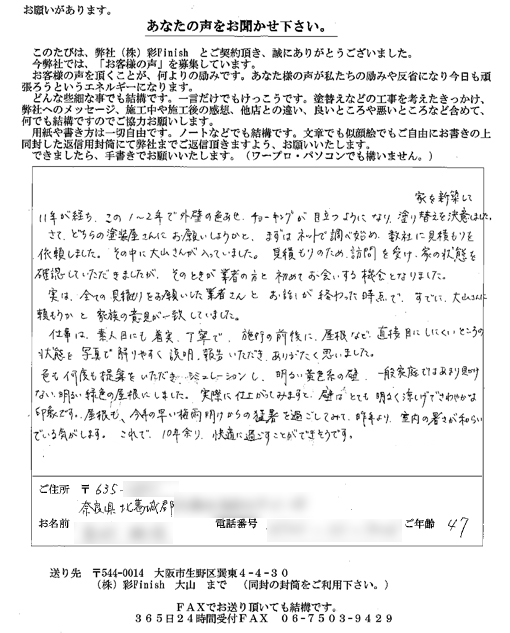 お願いがあります。
あなたの声をお聞かせ下さい。
このたびは、弊社（株）彩Finish とご契約頂き、誠にありがとうございました。
今弊社では、「お客様の声」を募集しています。
お客様の声を頂くことが、何よりの励みです。あなた様の声が私たちの励みや反省になり今日も頑
張ろうというエネルギーになります。
どんな些細な事でも結構です。一言だけでもけっこうです。塗替えなどの工事を考えたきっかけ、
弊社へのメッセージ、施工中や施工後の感想、他店との違い、良いところや悪いところなど含めて、
何でも結構ですのでご協力お願いします。
用紙や書き方は一切自由です。ノートなどでも結構です。文章でも似顔絵でもご自由にお書きの上
同封した返信用封筒にて弊社までご返信頂きますよう、お願いいたします。
できましたら、手書きでお願いいたします。（ワープロ・パソコンでも構いません。）
家を新築して
11年が経ち、この1〜2年で外壁の色あせ、チョーキングが目立つようになり、塗り替えを決意しました。
さて、どちらの塗装屋さんにお願いしようかと、まずはネットで調べ始め、数社に見積もりを
依頼しました。その中に大山さんが入っていました。見積もりのため、訪問を受け、家の状態を
確認していただきましたが、そのときが業者の方と初めてお会いする機会となりました。
実は、全ての見積りをお願いした業者さんとお話しが終わった時点で、すでに、大山さんに
頼もうかと家族の意見が一致していました。
仕事は、素人目にも着実、丁寧で、施行の前後に、屋根など、直接目にしにくいところの
状態を写真で解りやすく説明、報告いただき、ありがたく思いました。
色も何度も提案をいただき、シミュレーションし、明るい黄色系の壁、一般家庭ではあまり見かけ
ない明るい緑色の屋根にしました。実際に仕上がってみますと、壁はとても明るく涼しげでさわやかな
印象です。屋根も、今年の早い梅雨明けからの猛暑を過ごしてみて、昨年より、室内の暑さが和らい
でいる気がします。これで、10年余り、快適に過ごすことができそうです。
ご住所 〒635-
奈良県北葛城郡
お名前 電話番号 ご年齢 47
送り先 〒544-0014 大阪市生野区巽東4-4-30
（株）彩Finish 大山 まで （同封の封筒をご利用下さい。）
FAXでお送り頂いても結構です。
365日24時間受付FAX 06-7503-9429